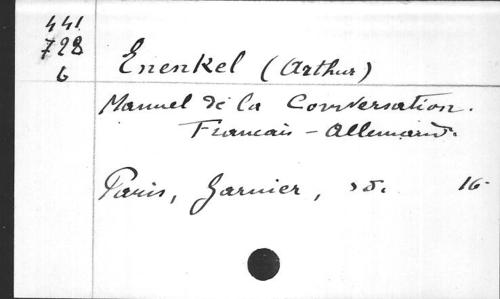 441
728
6
Enenkel (Arthur)
Manuel de la Conversation.
Francais - Allemand.
Paris, Garnier, sd. 16-